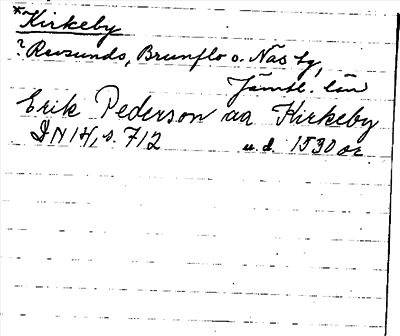 *Kirkeby
? Revsunds, Brunflo o. Näs tg,
Jämtl. län
Erik Pederson aa Kirkeby
DN 14, s. 712 u.d. 1530 ar